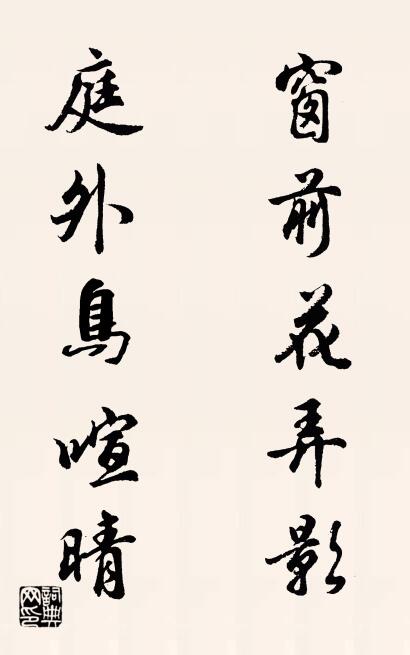 窗前花弄影
庭外鳥喧晴
詞典
网印